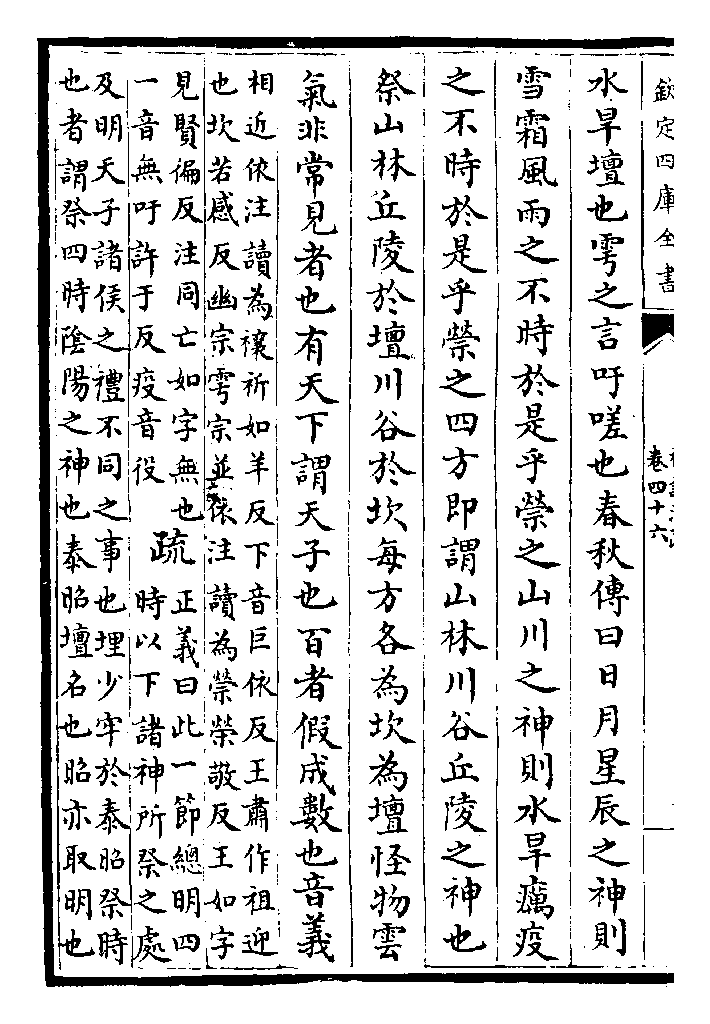 欽定四庫全書
卷四十六
水旱壇也雩之言吁嗟也春秋傳曰日月星辰之神則
雪霜風雨之不時於是乎禜之山川之神則水旱癘疫
之不時於是乎禜之四方即謂山林川谷丘陵之神也
祭山林丘陵於壇川谷於坎每方各為坎為壇怪物雲
氣非常見者也有天下謂天子也百者假成數也音義
相近依注讀為禳祈如羊反下音巨依反王肅作祖迎
也坎若感反幽宗雩宗並依注讀為禜榮敬反王如字
見賢徧反注同亡如字無也
一音無吁許于反疫音役
疏
正義曰此一節總明四
時以下諸神所祭之處
及明天子諸侯之禮不同之事也埋少牢於泰昭祭時
也者謂祭四時陰陽之神也泰昭壇名也昭亦取明也